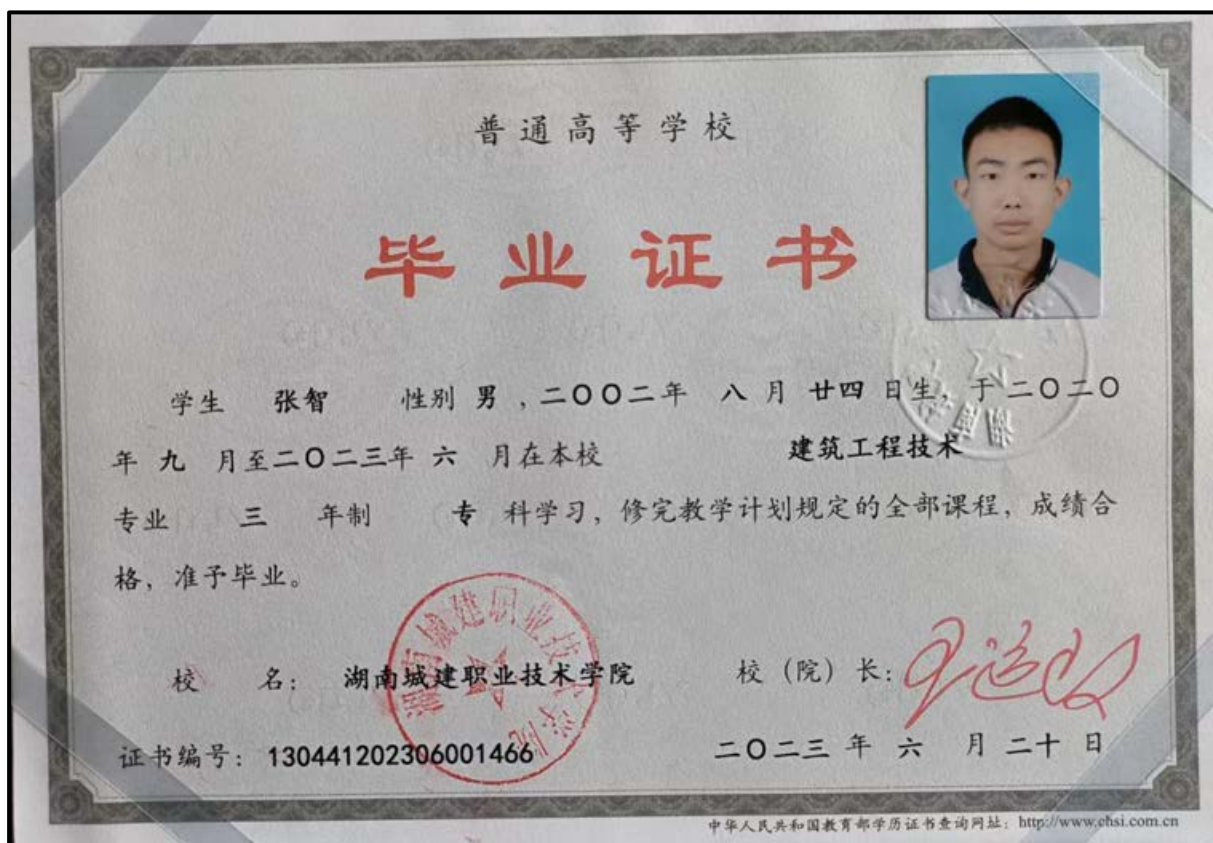 普通高等学校
毕业证书
学生 张智 性别 男 ，二〇〇二年 八 月 廿四 日生，于二〇二〇
年 九 月至二〇二三年 六 月在本校 建筑工程技术
专业 三 年制 专 科学习，修完教学计划规定的全部课程，成绩合
格，准予毕业。
校 名： 湖南城建职业技术学院 校（院）长：
湖南城建职业技术学院
证书编号：130441202306001466 二〇二三 年 六 月 二十 日
中华人民共和国教育部学历证书查询网址：http://www.chsi.com.cn